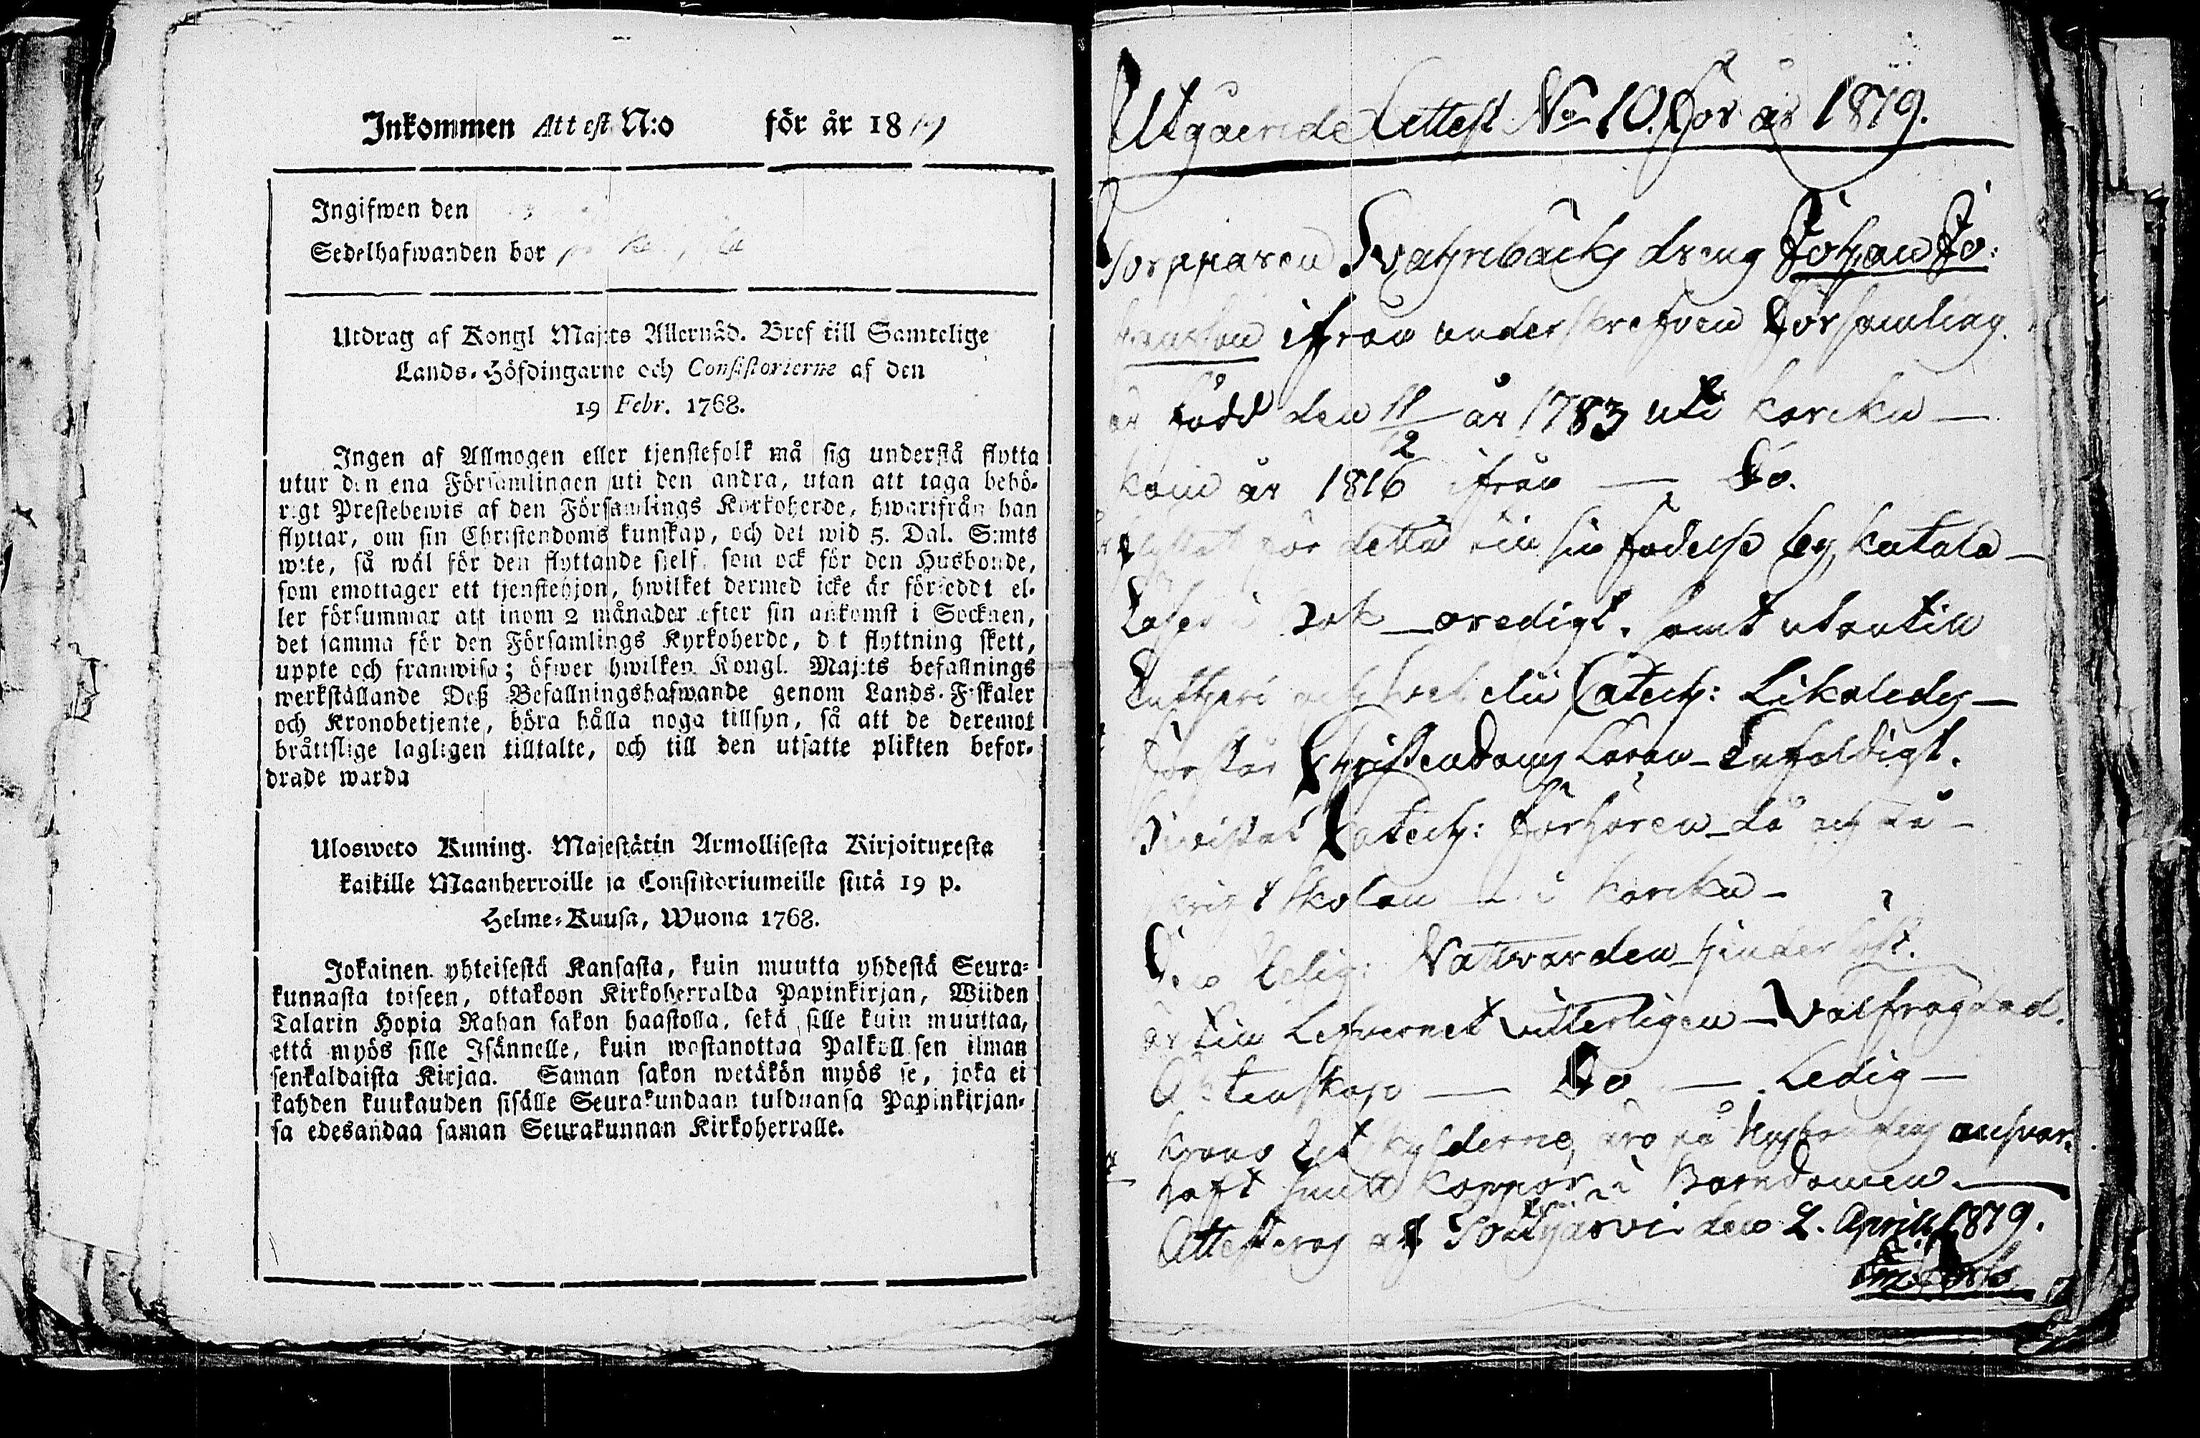 Inkommen Attest N:o för år 1819
Ingifwen den
Sedelhafwanden bor
Utdrag af Kongl Maj:ts Allernåd. Bref till Samtelige
Lands-Höfdingarne och Consistorierne af den
19 Febr. 1768.
Ingen af Allmogen eller tjenstefolk må sig understå flytta
utur den ena Församlingen uti den andra, utan att taga behö-
rigt Prestebewis af den Församlings Kyrkoherde, hwarifrån han
flyttar, om sin Christendoms kunskap, och det wid 5. Dal. S:mts
wite, så wäl för den flyttande sjelf, som ock för den Husbonde,
som emottager ett tjenstehjon, hwilket dermed icke är förseddt el-
ler försummar att inom 2 månader efter sin ankomst i Socknen,
det samma för den Församlings Kyrkoherde, dit flyttning skett,
uppte och framwisa; öfwer hwilken Kongl. Maj:ts befallnings
werkställande Deß Befallningshafwande genom Lands-Fiskaler
och Kronobetjente, böra hålla noga tillsyn, så att de deremot
bråttslige lagligen tilltalte, och till den utsatte plikten befor-
drade warda
Ulosweto Kuning. Majestätin Armollisesta Kirjoituxesta
kaikille Maanherroille ja Consistoriumeille siitä 19 p.
Helme-Kuusa, Wuona 1768.
Jokainen yhteisestä Kansasta, kuin muutta yhdestä Seura-
kunnasta toiseen, ottakoon Kirkoherralda Papinkirjan, Wiiden
Talarin Hopia Rahan sakon haastolla, sekä sille kuin muuttaa,
että myös sille Isännelle, kuin wastanottaa Palkollisen ilman
senkaldaista Kirjaa. Saman sakon wetäkön myös se, joka ei
kahden kuukauden sisälle Seurakundaan tulduansa Papinkirjan-
sa edesandaa saman Seurakunnan Kirkoherralle.
Utgående Attest No 10. för år 1819.
Torpparen Svahnbäcks dreng Johan Jo:
hansson ifrån underskrefven Församling.
är född den 11/12 år 1783 uti Karcku —
Kom år 1816 ifrån — Do.
flyttat för detta till sin födelse by, Kutala —
Läser i bok — oredigt. samt utantill
Lutheri och Catech: Likaledes —
förstår Christendoms Läran — Enfaldigt.
Bivistat Catech: förhören — då och då —
skrift skolan — i Karcku —
Den Helig: Nattvarden — hinderlöst.
är till Lefvernet ytterligen — Välfrägdad.
Äktenskap — Do — Ledig —
Krono Utskylderne, äro på Husbondens ansvar.
haft små Koppor i Barndomen. —
Attesteras af Sottjärvi den 2. Aprill 1819.